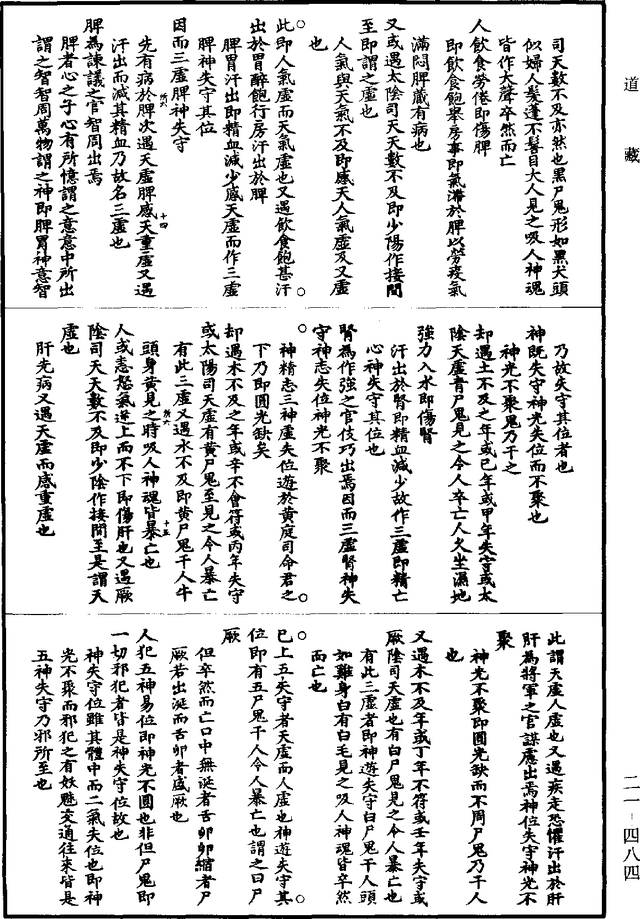 道藏
司天數不及亦然也黑尸鬼形如黑犬頭
似婦人髮蓬不髻目大人見之吸人神魂
皆作大聲卒然而亡
人飲食勞倦即傷脾
即飲食飽舉房事即氣滯於脾以勞疲氣
滿悶脾藏有病也
又或遇太陰司天天數不及即少陽作接間
至即謂之虛也
人氣與天氣不及即感天人氣虛及又虛
也
此即人氣虛而天氣虛也又遇飲食飽甚汗
出於胃醉飽行房汗出於脾
脾胃汗出即精血減少感天虛而作三虛
脾神失守其位
因而三虛脾神失守
先有病於脾次遇天虛脾感天重虛又遇
汗出而減其精血乃故名三虛也
脾為諫議之官智周出焉
脾者心之子心有所憶謂之意意中所出
謂之智智周萬物謂之神即脾胃神意智
所六
十四
乃故失守其位者也
神既失守神光失位而不聚也
神光不聚鬼乃干之
却遇土不及之年或已年或甲年失守或太
陰天虛青尸鬼見之令人卒亡人久坐濕地
強力入水即傷腎
汗出於腎即精血減少故作三虛即精亡
心神失守其位也
腎為作強之官伎巧出焉因而三虛腎神失
守神志失位神光不聚
神精志三神虛失位遊於黃庭司命君之
下乃即圓光缺矣
却遇水不及之年或辛不會符或丙年失守
或太陽司天虛有黃尸鬼至見之令人暴亡
有此三虛又遇水不及即黃尸鬼干人牛
頭身黃見之時吸人神魂皆暴亡也
人或恚怒氣逆上而不下即傷肝也又遇厥
陰司天天數不及即少陰作接間至是謂天
虛也
肝先病又遇天虛而感重虛也
所六
十五
此謂天虛人虛也又遇疾走恐懼汗出於肝
肝為將軍之官謀慮出焉神位失守神光不
聚
神光不聚即圓光缺而不周尸鬼乃干人
也
又遇木不及年或丁年不符或壬年失守或
厥陰司天虛也有白尸鬼見之令人暴亡也
有此三虛者即神遊失守白尸鬼干人頭
如雞身白有白毛見之吸人神魂皆卒然
而亡也
已上五失守者天虛而人虛也神遊失守其
位即有五尸鬼干人令人暴亡也謂之曰尸
厥
但卒然而亡口中無涎者舌卵卵縮者尸
厥若出涎而舌卵者盛厥也
人犯五神易位即神光不圓也非但尸鬼即
一切邪犯者皆是神失守位故也
神失守位雖其體中而二氣失位也即神
光不聚而邪犯之有妖魅交通往來皆是
五神失守乃邪所至也
二一-四八四